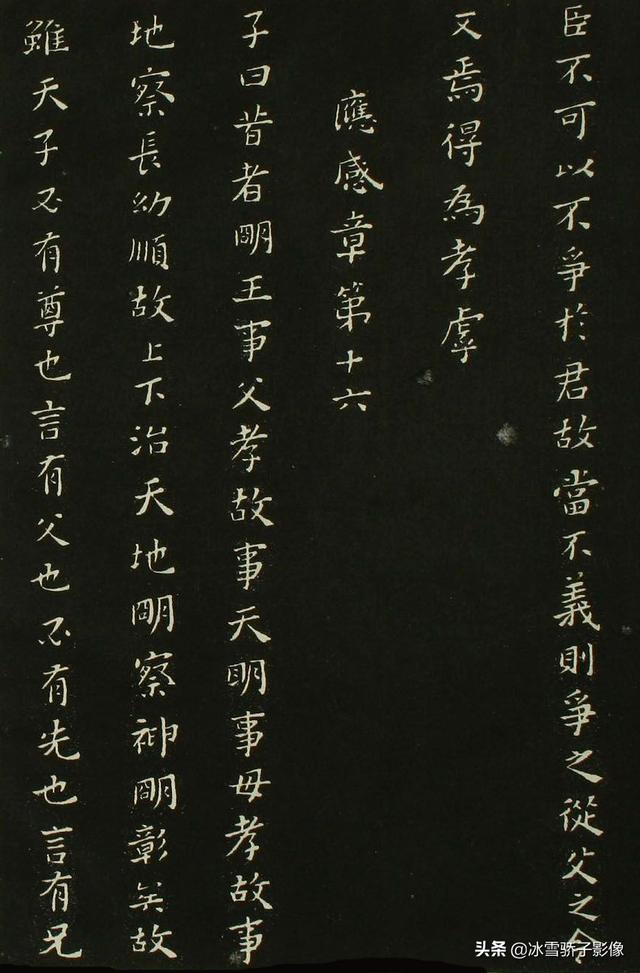 臣不可以不爭於君故當不義則爭之從父之令
又焉得為孝虖
應感章第十六
子曰昔者明王事父孝故事天明事母孝故事
地察長幼順故上下治天地明察神明彰矣故
雖天子必有尊也言有父也必有先也言有兄
头条 @冰雪骄子影像